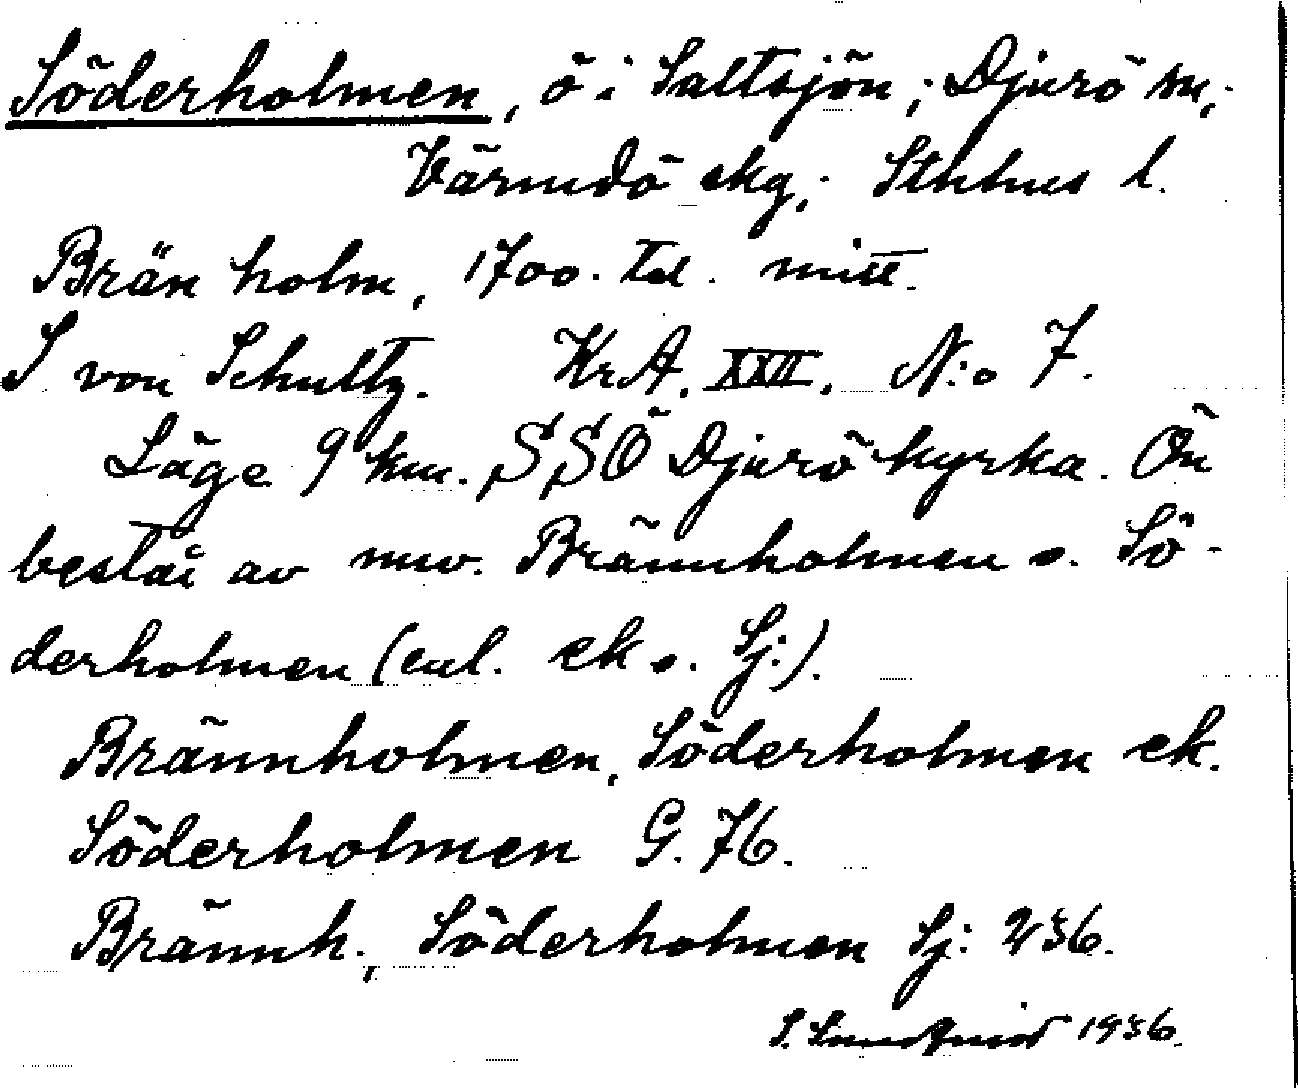 Söderholmen, ö i Saltsjön; Djurö sn,;
Värmdö skg,; Sthlms l.
Brän holm, 1700. tal. mitt.
S von Schultz. KrA. XXII. N:o 7.
Läge 9 km. SSÖ Djurö kyrka. Ön
består av nuv. Brännholmen o. Sö-
derholmen (enl. ek o. Sj:).
Brännholmen, Söderholmen ek.
Söderholmen G. 76.
Brännh., Söderholmen Sj: 236.
S. Lundqvist 1936.